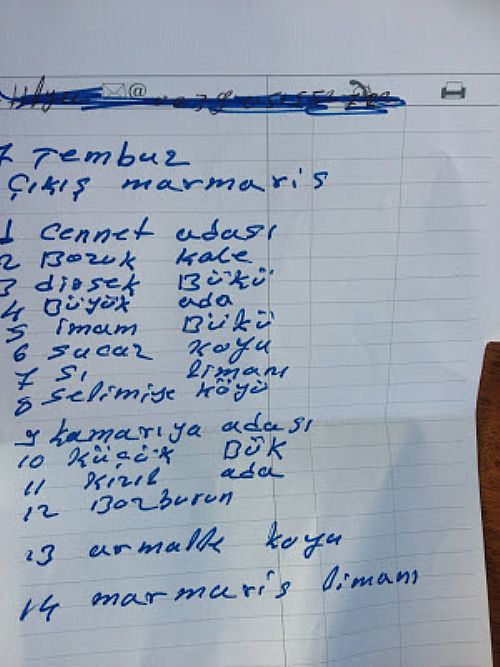 7 Tembuz
Çıkış marmaris
1 Cennet adası
2 Bozuk kale
3 dirsek Bükü
4 Büyük ada
5 imam Bükü
6 sucaz koyu
7 sı limanı
8 selimiye köyü
9 kamarıya adası
10 küçük Bük
11 kızıl ada
12 Bozburun
13 armalte koyu
14 marmaris limanı